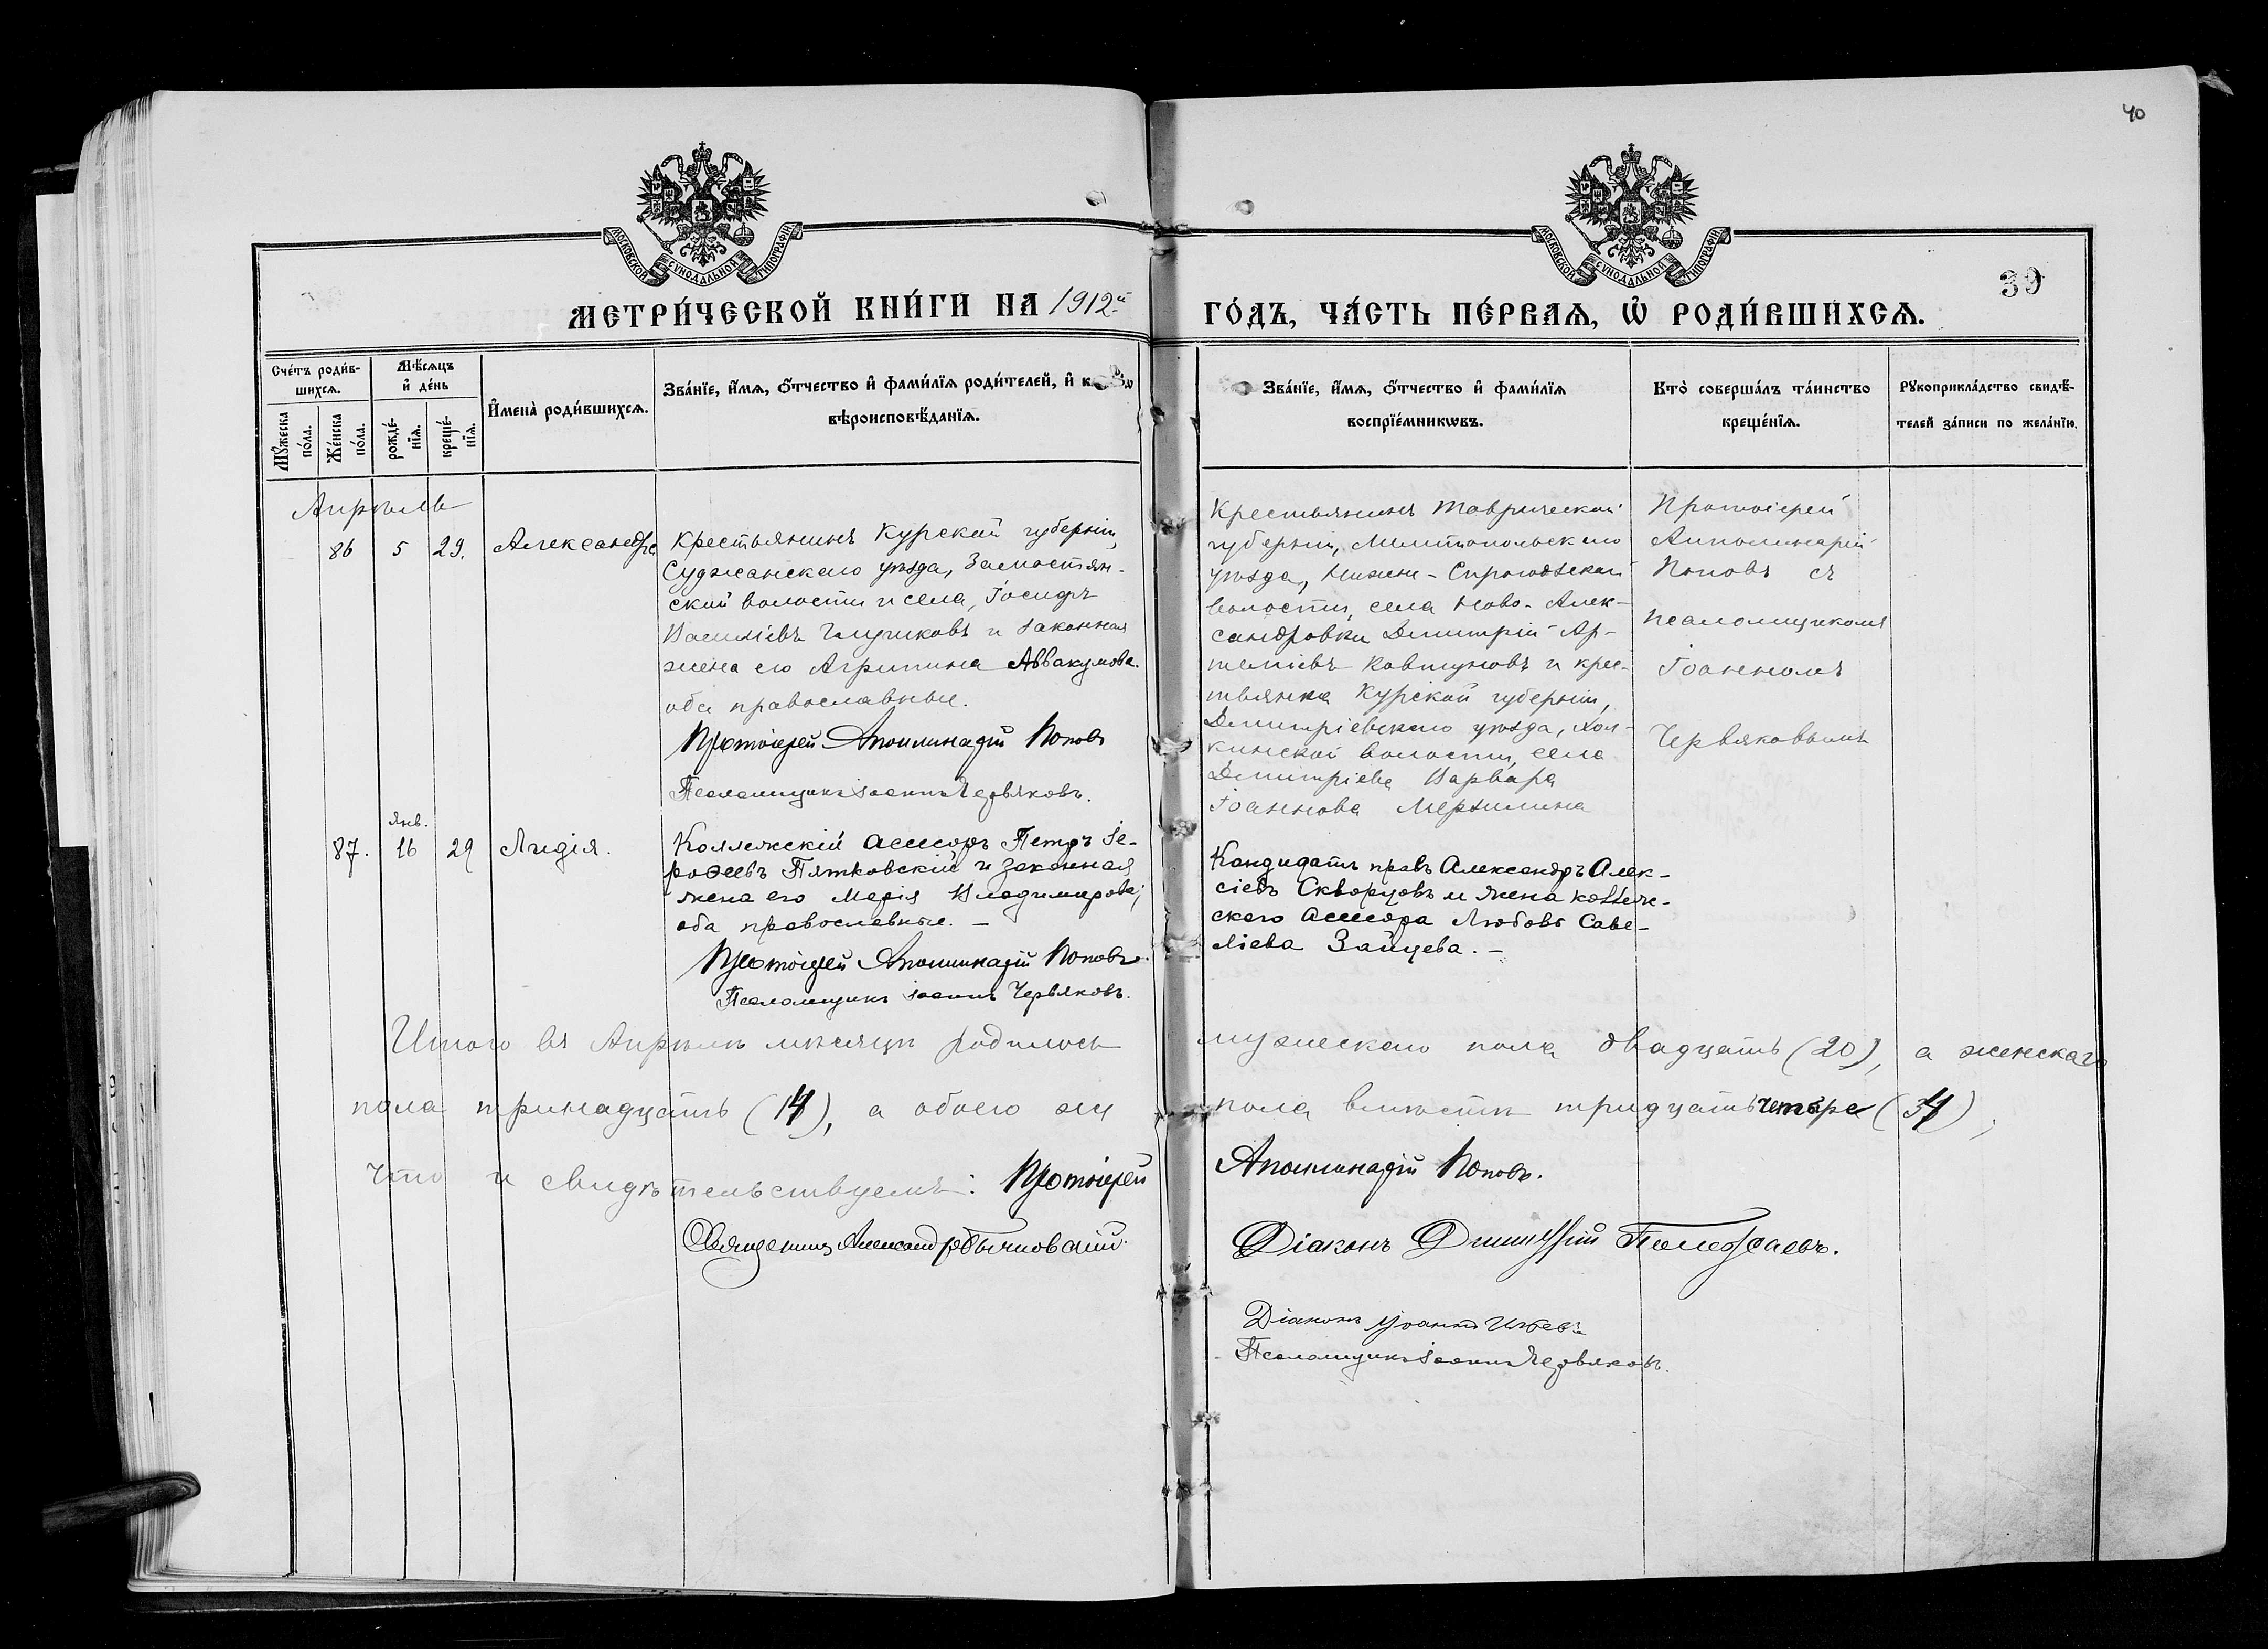 40
МОСКОВСКОЙ СУНОДАЛЬНОЙ ТИПОГРАФІИ
МОСКОВСКОЙ СУНОДАЛЬНОЙ ТИПОГРАФІИ
39
МЕТРИ́ЧЕСКОЙ КНИ́ГИ НА 1912й ГО́ДЪ, ЧА́СТЬ ПЕ́РВАѦ, Ѡ РОДИ́ВШИХСѦ.
Сче́тъ роди́в-
шихсѧ.
Мꙋ́жеска по́ла.
Же́нска по́ла.
Мѣ́сѧцъ
и де́нь
рожде́-
нїѧ.
креще́-
нїѧ.
И҆мена̀ роди́вшихсѧ.
Зва́нїе, и҆́мѧ, ѻ҆́тчество и҆ фами́лїѧ роди́телей, и҆
вѣроисповѣ́данїѧ.
Зва́нїе, и҆́мѧ, ѻ҆́тчество и҆ фами́лїѧ
воспрїе́мникѡвъ.
Кто̀ соверша́лъ та́инство
креще́нїѧ.
Рꙋкоприкла́дство свидѣ́-
телей за́писи по жела́нїю.
Апрѣль
86 5 29. Александра
Крестьянинъ Курской губерніи,
Суджанскаго уѣзда, Замостян-
ской волости и села, Іосифъ
Василіевъ и законная
жена его Агрипина Аввакумова.
оба православные.
Протоіерей Аполинарій Поповъ
Псаломщикъ Іоаннъ Червяковъ.
Крестьянинъ Таврической
губерніи, Мелитопольскаго
уѣзда, Нижне-Сирогозской
волости, села Ново-Алек-
сандровки Димитрій Ар-
теміевъ Ковтуновъ и крес-
тьянка Курской губерніи,
Димитріевскаго уѣзда,
волости, села
Димитріева Варвара
Іоаннова
Протоіерей
Апполинарій
Поповъ съ
псаломщикомъ
Іоанномъ
Червяковымъ
87. янв. 16 29 Лидія.
Коллежскій асессоръ Петръ Іе-
роѳеевъ Пятковскій и законная
жена его Марія Владимирова;
оба православные. –
Протоіерей Аполлинарій Поповъ.
Псаломщикъ Іоаннъ Червяковъ.
Кандидатъ правъ Александръ Алек-
сіевъ Скворцовъ и жена коллеж-
скаго асессора Любовь Саве-
ліева Зайцева. –
Итого въ Апрѣлѣ мѣсяцѣ родилось мужескаго пола двадцать (20), а женскаго
пола тринадцать (14), а обоего же пола вмѣстѣ тридцать четыре (34),
что и свидѣтельствуемъ: Протоіерей Аполлинарій Поповъ.
Священникъ Александръ
Діаконъ Димитрій
Діаконъ Іоаннъ
Псаломщикъ Іоаннъ Червяковъ.